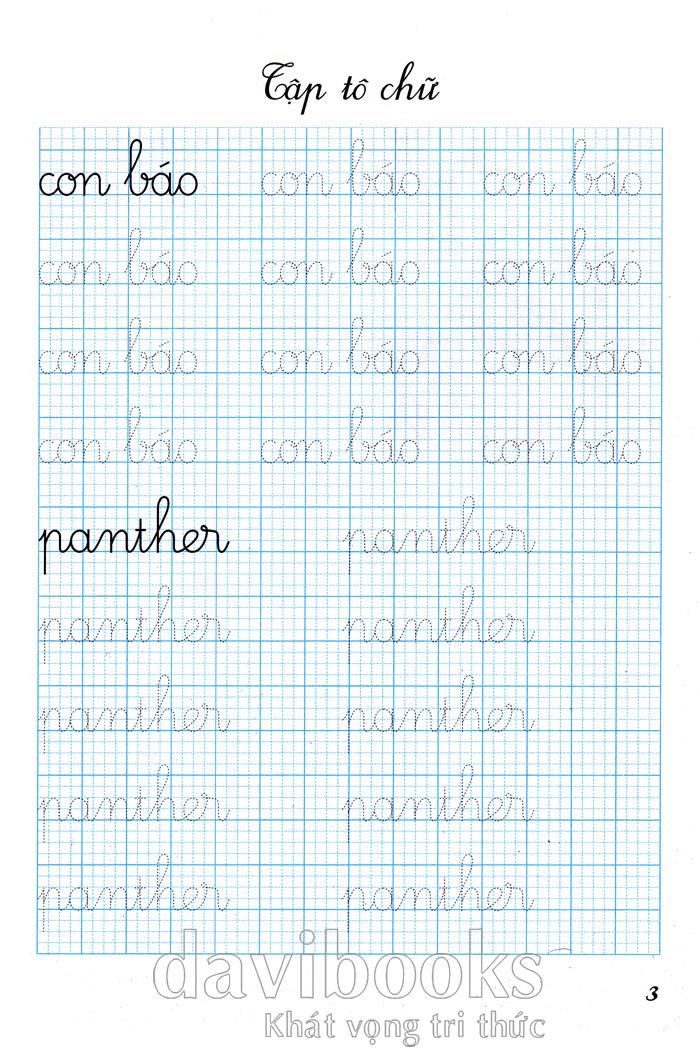 Tập tô chữ
con báo con báo con báo
con báo con báo con báo
con báo con báo con báo
con báo con báo con báo
panther panther
panther panther
panther panther
panther panther
panther panther
davibooks
Khát vọng tri thức
3